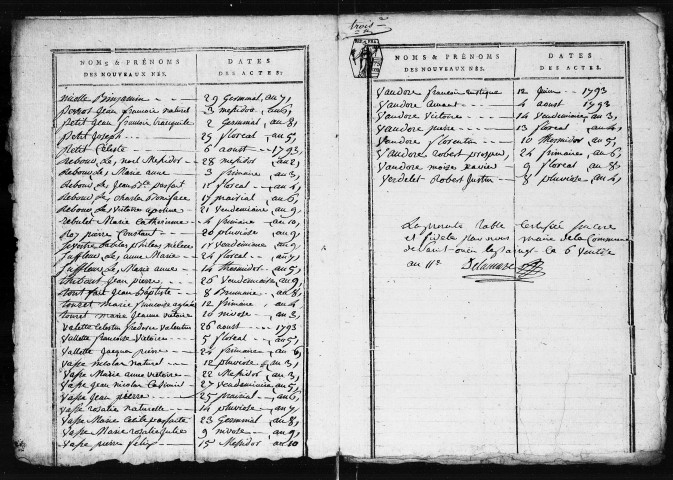 NOMS & PRÉNOMS DES NOUVEAUX NÉS. DATES DES ACTES:
nicolle Binjamin 29 Germinal, an 7
perrot Jean francois naturel 3 messidor, an 6
petit Jean francois tranquile 2 Germinal, an 8
petit Joseph 25 floreal an 5
petit Celeste 6 aoust 1793
Rebours, noel Messidor 28 messidor, an 2
Rebours, Marie anne 3 frimaire an 3
Rebours de Jean Bte parfait 15 floreal an 4
Rebours, de Charles Boniface 17 prairial an 6
Rebours, de Victoire apoline 21 vendemiaire an 9
Rebulet Marie Catherinne 4 frimaire an 10
Roy pierre Constant 20 pluviose an 9
17 vendemiaire an 9
Suffleur, de anne Marie 24 floreal an 7
Suffleur, de, Marie anne 14 thermidor an 5
thibout Jean pierre 26 Vendemiaire an 9
tout fait Jean Baptiste 8 Brumaire an 8
touret marie francoise 12 frimaire an 4
touret marie Jeanne victoire 10 nivose an 3
Valette Celestin frederic valentin 26 aoust 1793
Vallette francoise Victoire 5 floreal an 5
Vallette Jacque pierre 22 frimaire an 6
Vasse nicolas naturel 12 pluviose an 3
Vasse Marie anne victoire 22 Messidor an 3
Vasse Jean nicolas Casimir 27 vendemiaire an 5
Vasse Jean pierre 25 prairial an 6
Vasse rosalie naturelle 14 pluviose, an 7
Vasse Marie Cecile parfaite 23 Germinal an 8
Vasse Marie rosalie 9 nivose an 9
Vasse pierre felix 15 Messidor an 10
trois
NOMS & PRÉNOMS DES NOUVEAUX NÉS. DATES DES ACTES.
Vaudore francois rustique 12 Juin 1793
Vaudore amant 4 aoust 1793
Vaudore Victoire 14 Vendemiaire an 3
Vaudore pierre 13 floreal an 4
Vaudore florentin 10 thermidor an 5
Vaudore robert prosper 24 frimaire an 6
Vaudore moise xavier 9 floreal an 8
Verdelet Robert Justin 8 pluviose an 4
La presente table Certifiée sincere
et fidele par nous maire de la Commune
de Saint ouen le 6 Ventose
an 11e Delamare